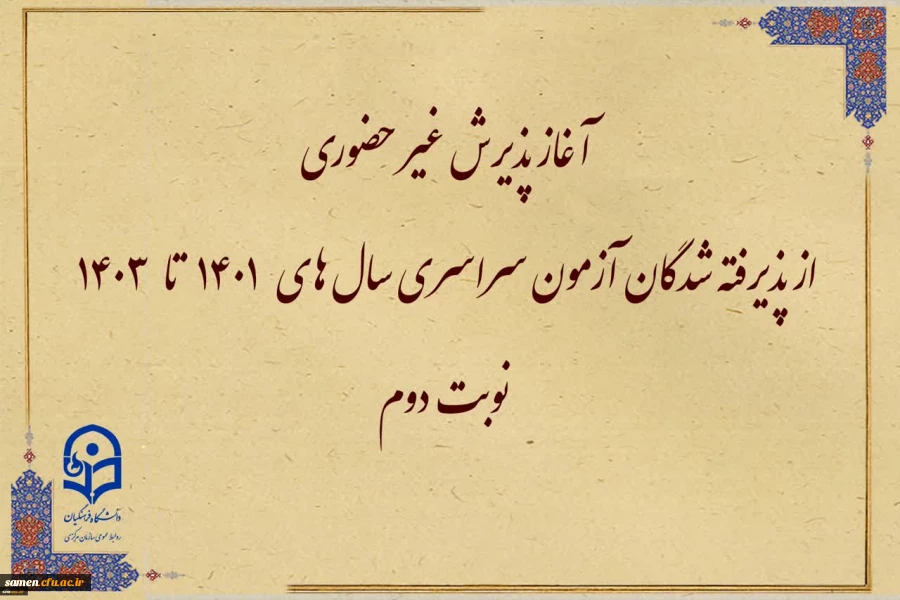 آغاز پذیرش غیر حضوری
از پذیرفته شدگان آزمون سراسری سال های ۱۴۰۱ تا ۱۴۰۳
نوبت دوم
دانشگاه فرهنگیان
روابط عمومی سازمان مرکزی
samen.cfu.ac.ir